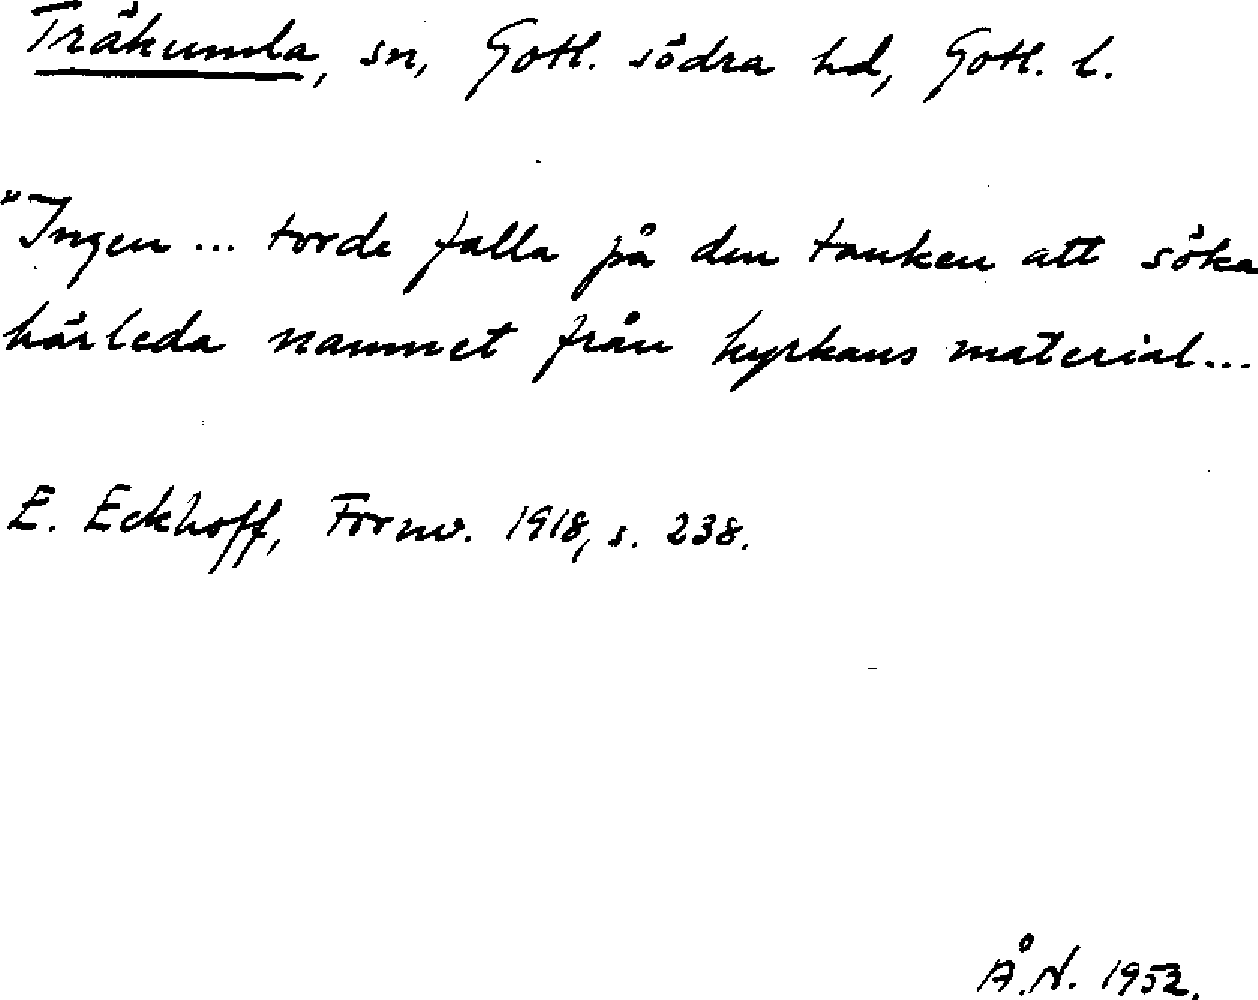 Träkumla, sn, Gotl. södra hd, Gotl. l.
"Ingen ... torde falla på den tanken att söka
härleda namnet från kyrkans material...
E. Eckhoff, Fornv. 1918, s. 238.
Å.N. 1952.